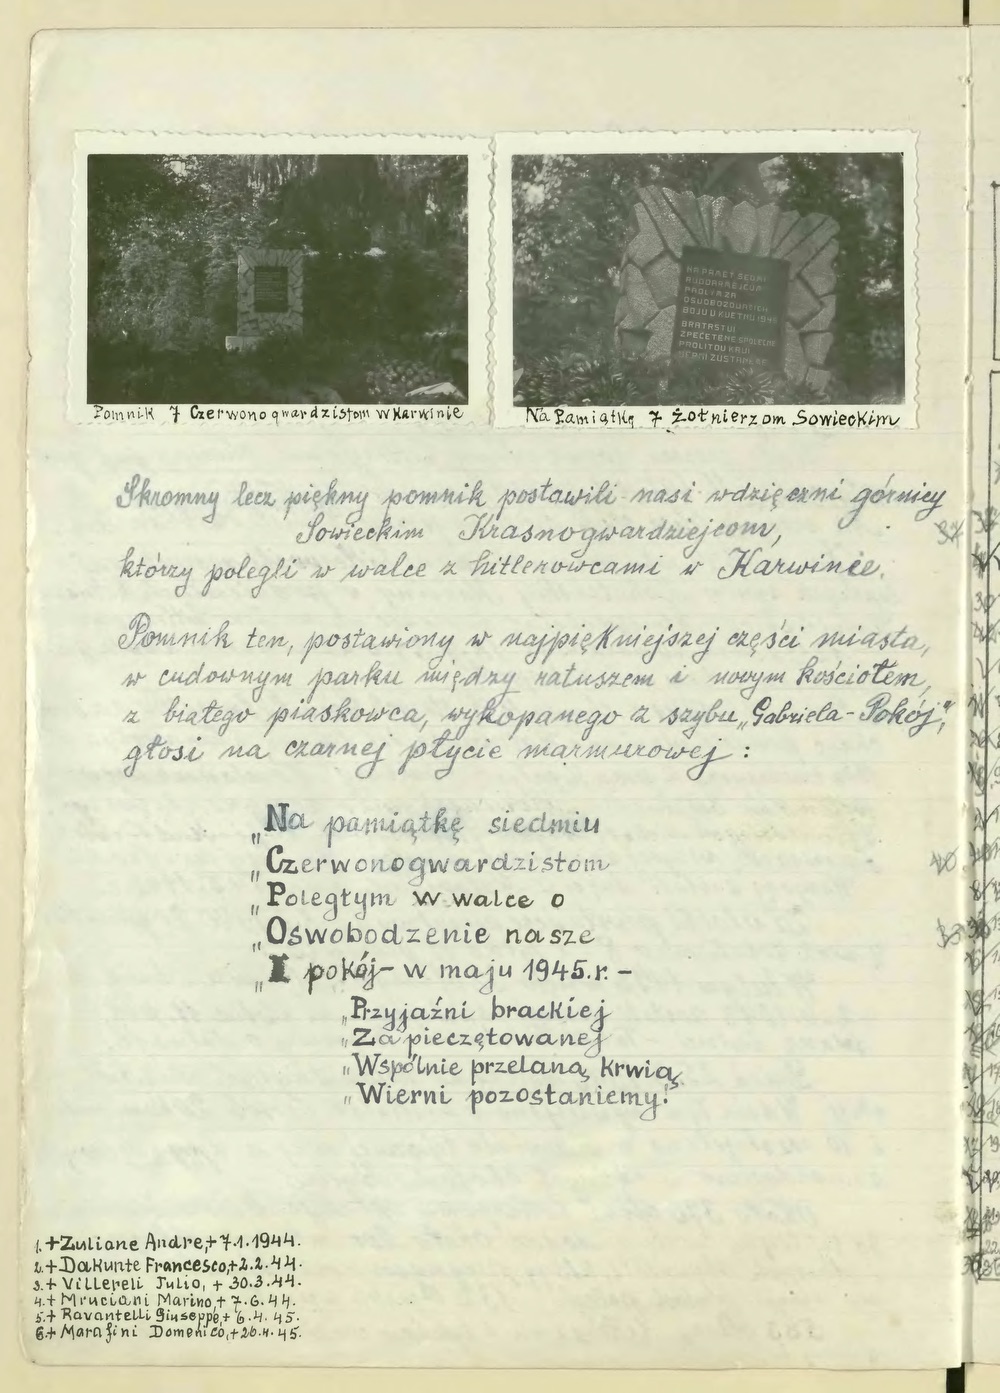 NA PAMĚT SEDMI
RUDOARMĚJCŮM
PADLÝM ZA
OSVOBOZOVACÍCH
BOJŮ V KVĚTNU 1945
BRATRSTVÍ
ZPEČETĚNÉ SPOLEČNĚ
PROLITOU KRVÍ
VĚRNI ZŮSTANEME
Pomnik 7 Czerwonogwardzistom w Karwinie
Na Pamiątkę 7 Żołnierzom Sowieckim
Skromny lecz piękny pomnik postawili nasi wdzięczni górnicy
Sowieckim Krasnogwardziejcom,
którzy polegli w walce z hitlerowcami w Karwinie.
Pomnik ten, postawiony w najpiękniejszej części miasta,
w cudownym parku między ratuszem i nowym kościołem,
z białego piaskowca, wykopanego z szybu „Gabriela-Pokój,"
głosi na czarnej płycie marmurowej :
„Na pamiątkę siedmiu
„Czerwonogwardzistom
„Poległym w walce o
„Oswobodzenie nasze
„I pokój- w maju 1945.r. -
„Przyjaźni brackiej
„Zapieczętowanej
„Wspólnie przelaną krwią
„Wierni pozostaniemy!"
1.+Zuliane Andre,+7.1.1944.
2.+Dakunte Francesco,+2.2.44.
3.+Villereli Julio, + 30.3.44.
4.+Mruciani Marino,+ 7.6.44.
5.+Ravantelli Giuseppe,+ 6.4.45.
6.+Marafini Domenico,+26.4.45.